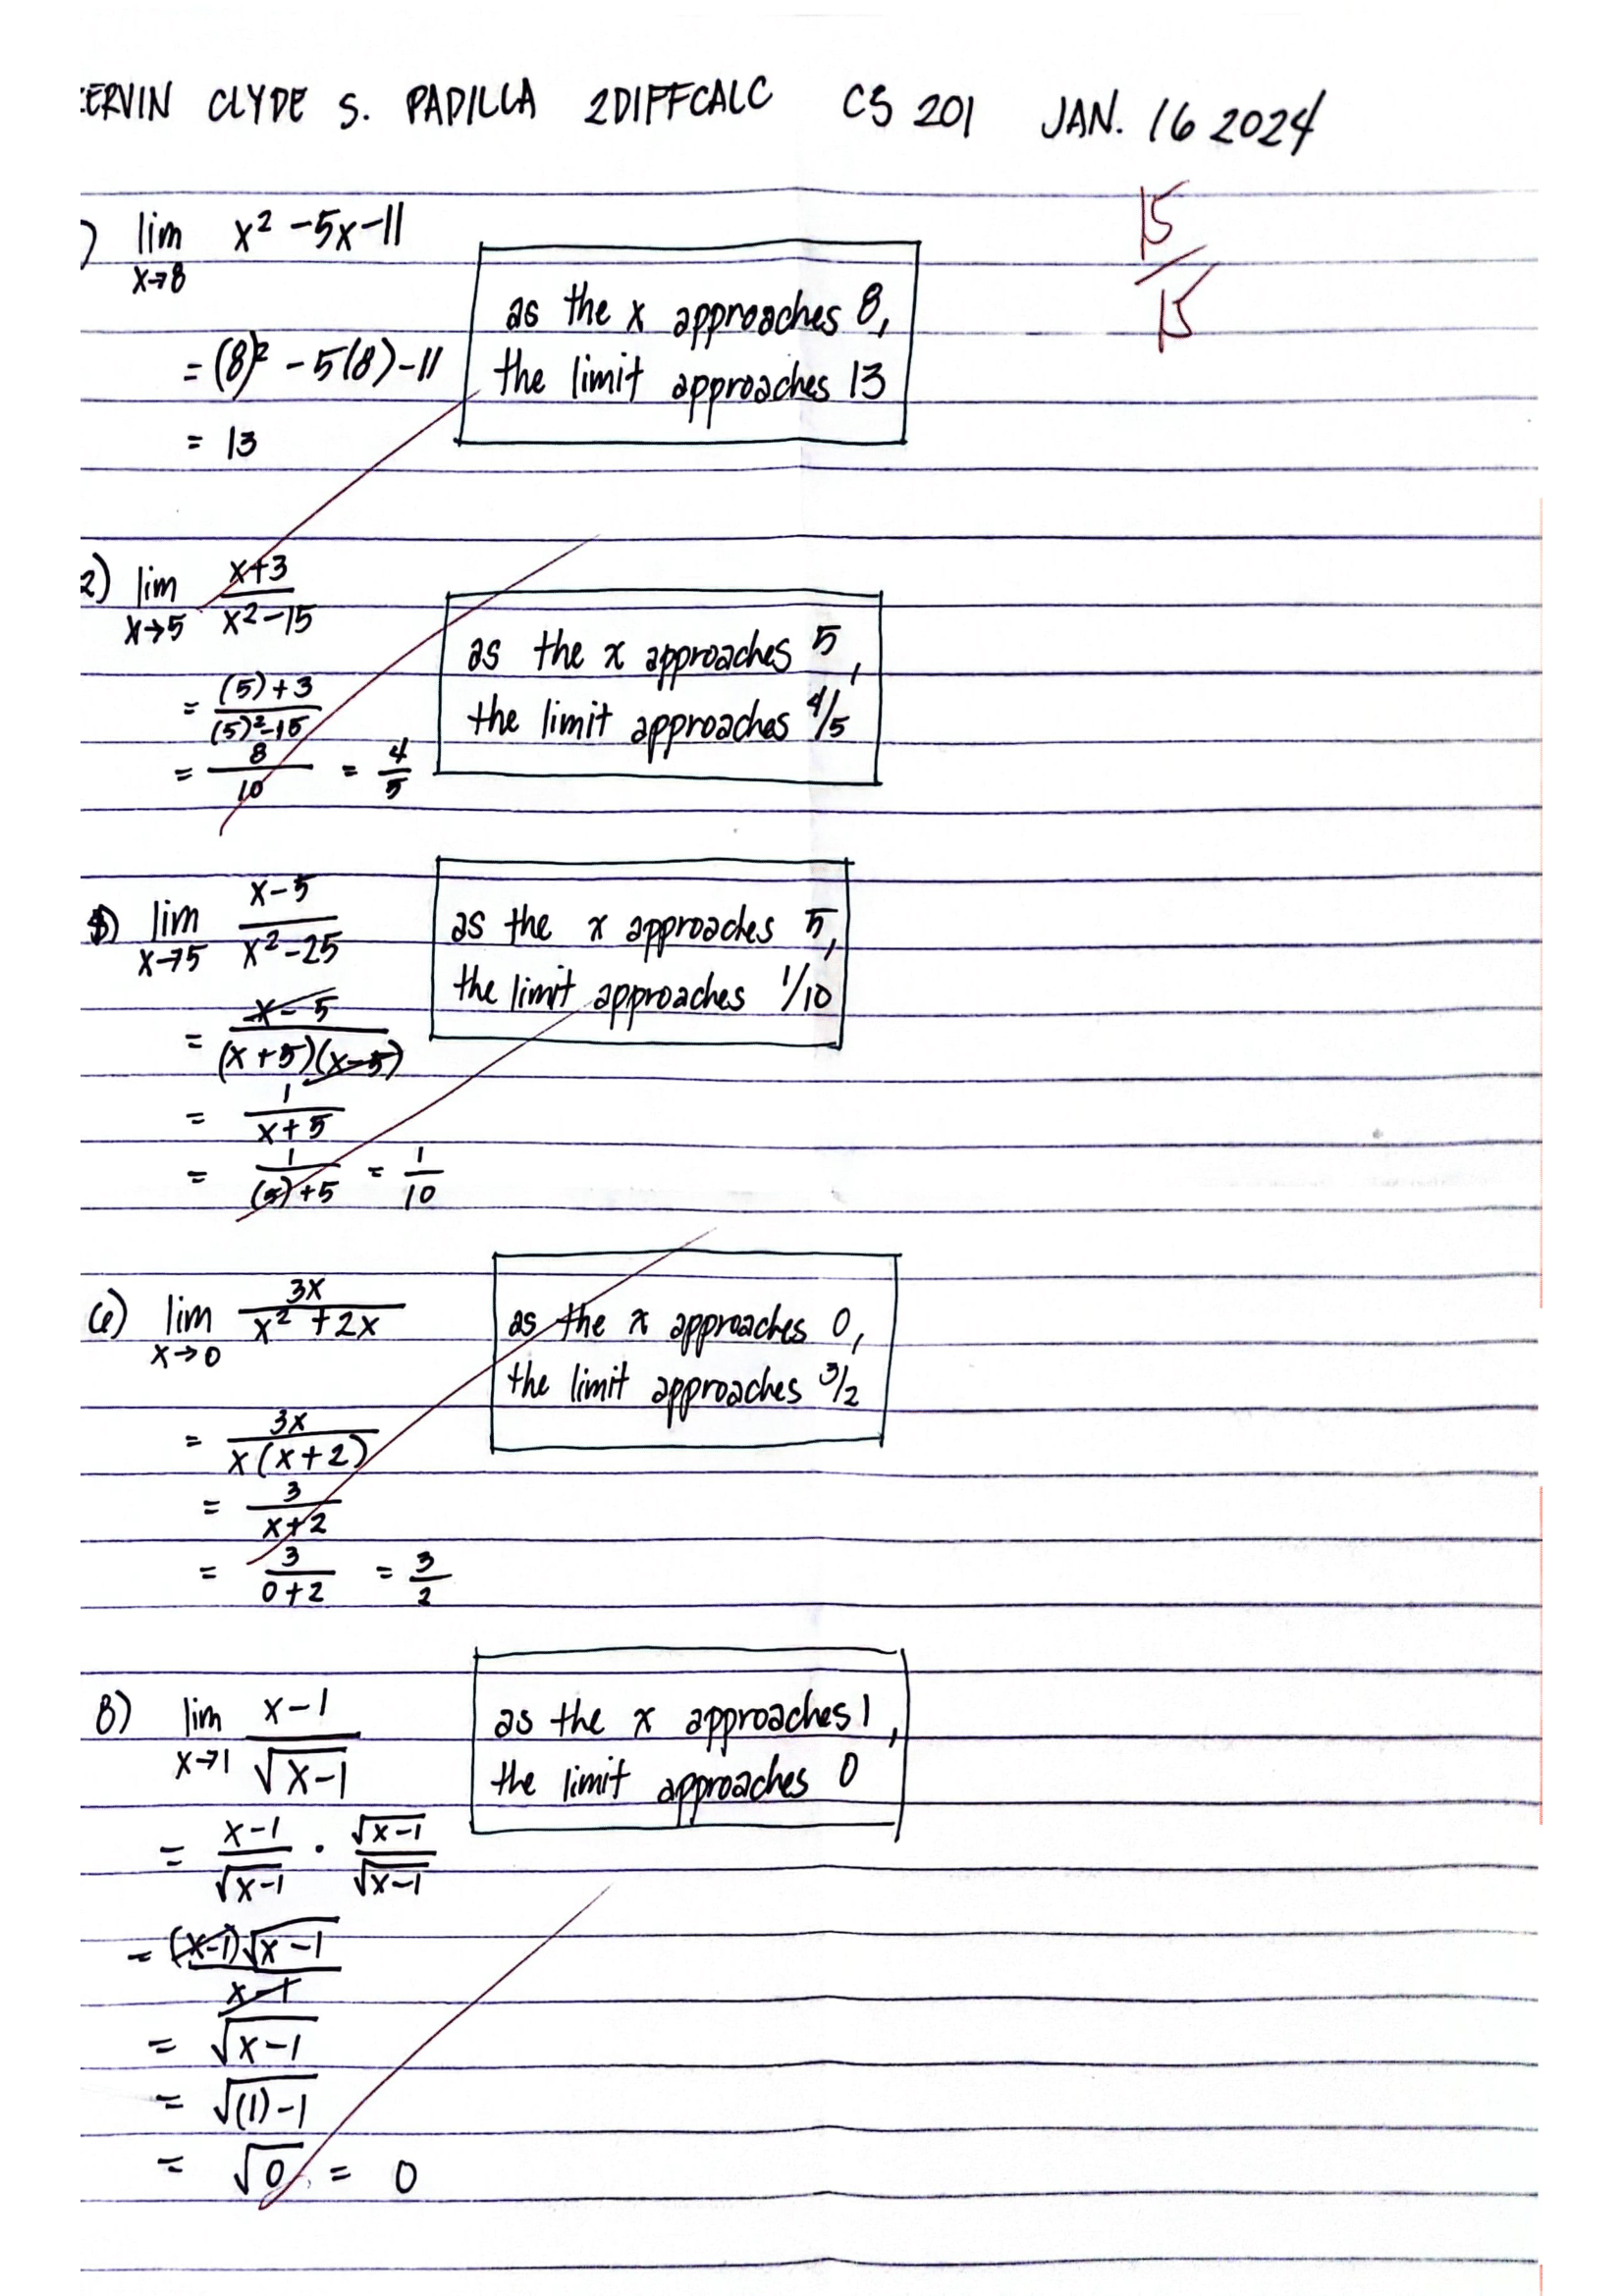 ERVIN CLYDE S. PADILLA 2DIFFCALC CS 201 JAN. 16 2024
15/15
) lim x→8 x² -5x-11
= (8)² -5(8)-11
= 13
as the x approaches 8,
the limit approaches 13
2) lim x→5 (x+3)/(x²-15)
= ((5)+3)/((5)²-15)
= 8/10 = 4/5
as the x approaches 5,
the limit approaches 4/5
) lim x→5 (x-5)/(x²-25)
= (x-5)/((x+5)(x-5))
= 1/(x+5)
= 1/((5)+5) = 1/10
as the x approaches 5,
the limit approaches 1/10
6) lim x→0 3x/(x²+2x)
= 3x/(x(x+2))
= 3/(x+2)
= 3/(0+2) = 3/2
as the x approaches 0,
the limit approaches 3/2
8) lim x→1 (x-1)/√(x-1)
= (x-1)/√(x-1) · √(x-1)/√(x-1)
= ((x-1)√(x-1))/(x-1)
= √(x-1)
= √((1)-1)
= √0 = 0
as the x approaches 1,
the limit approaches 0